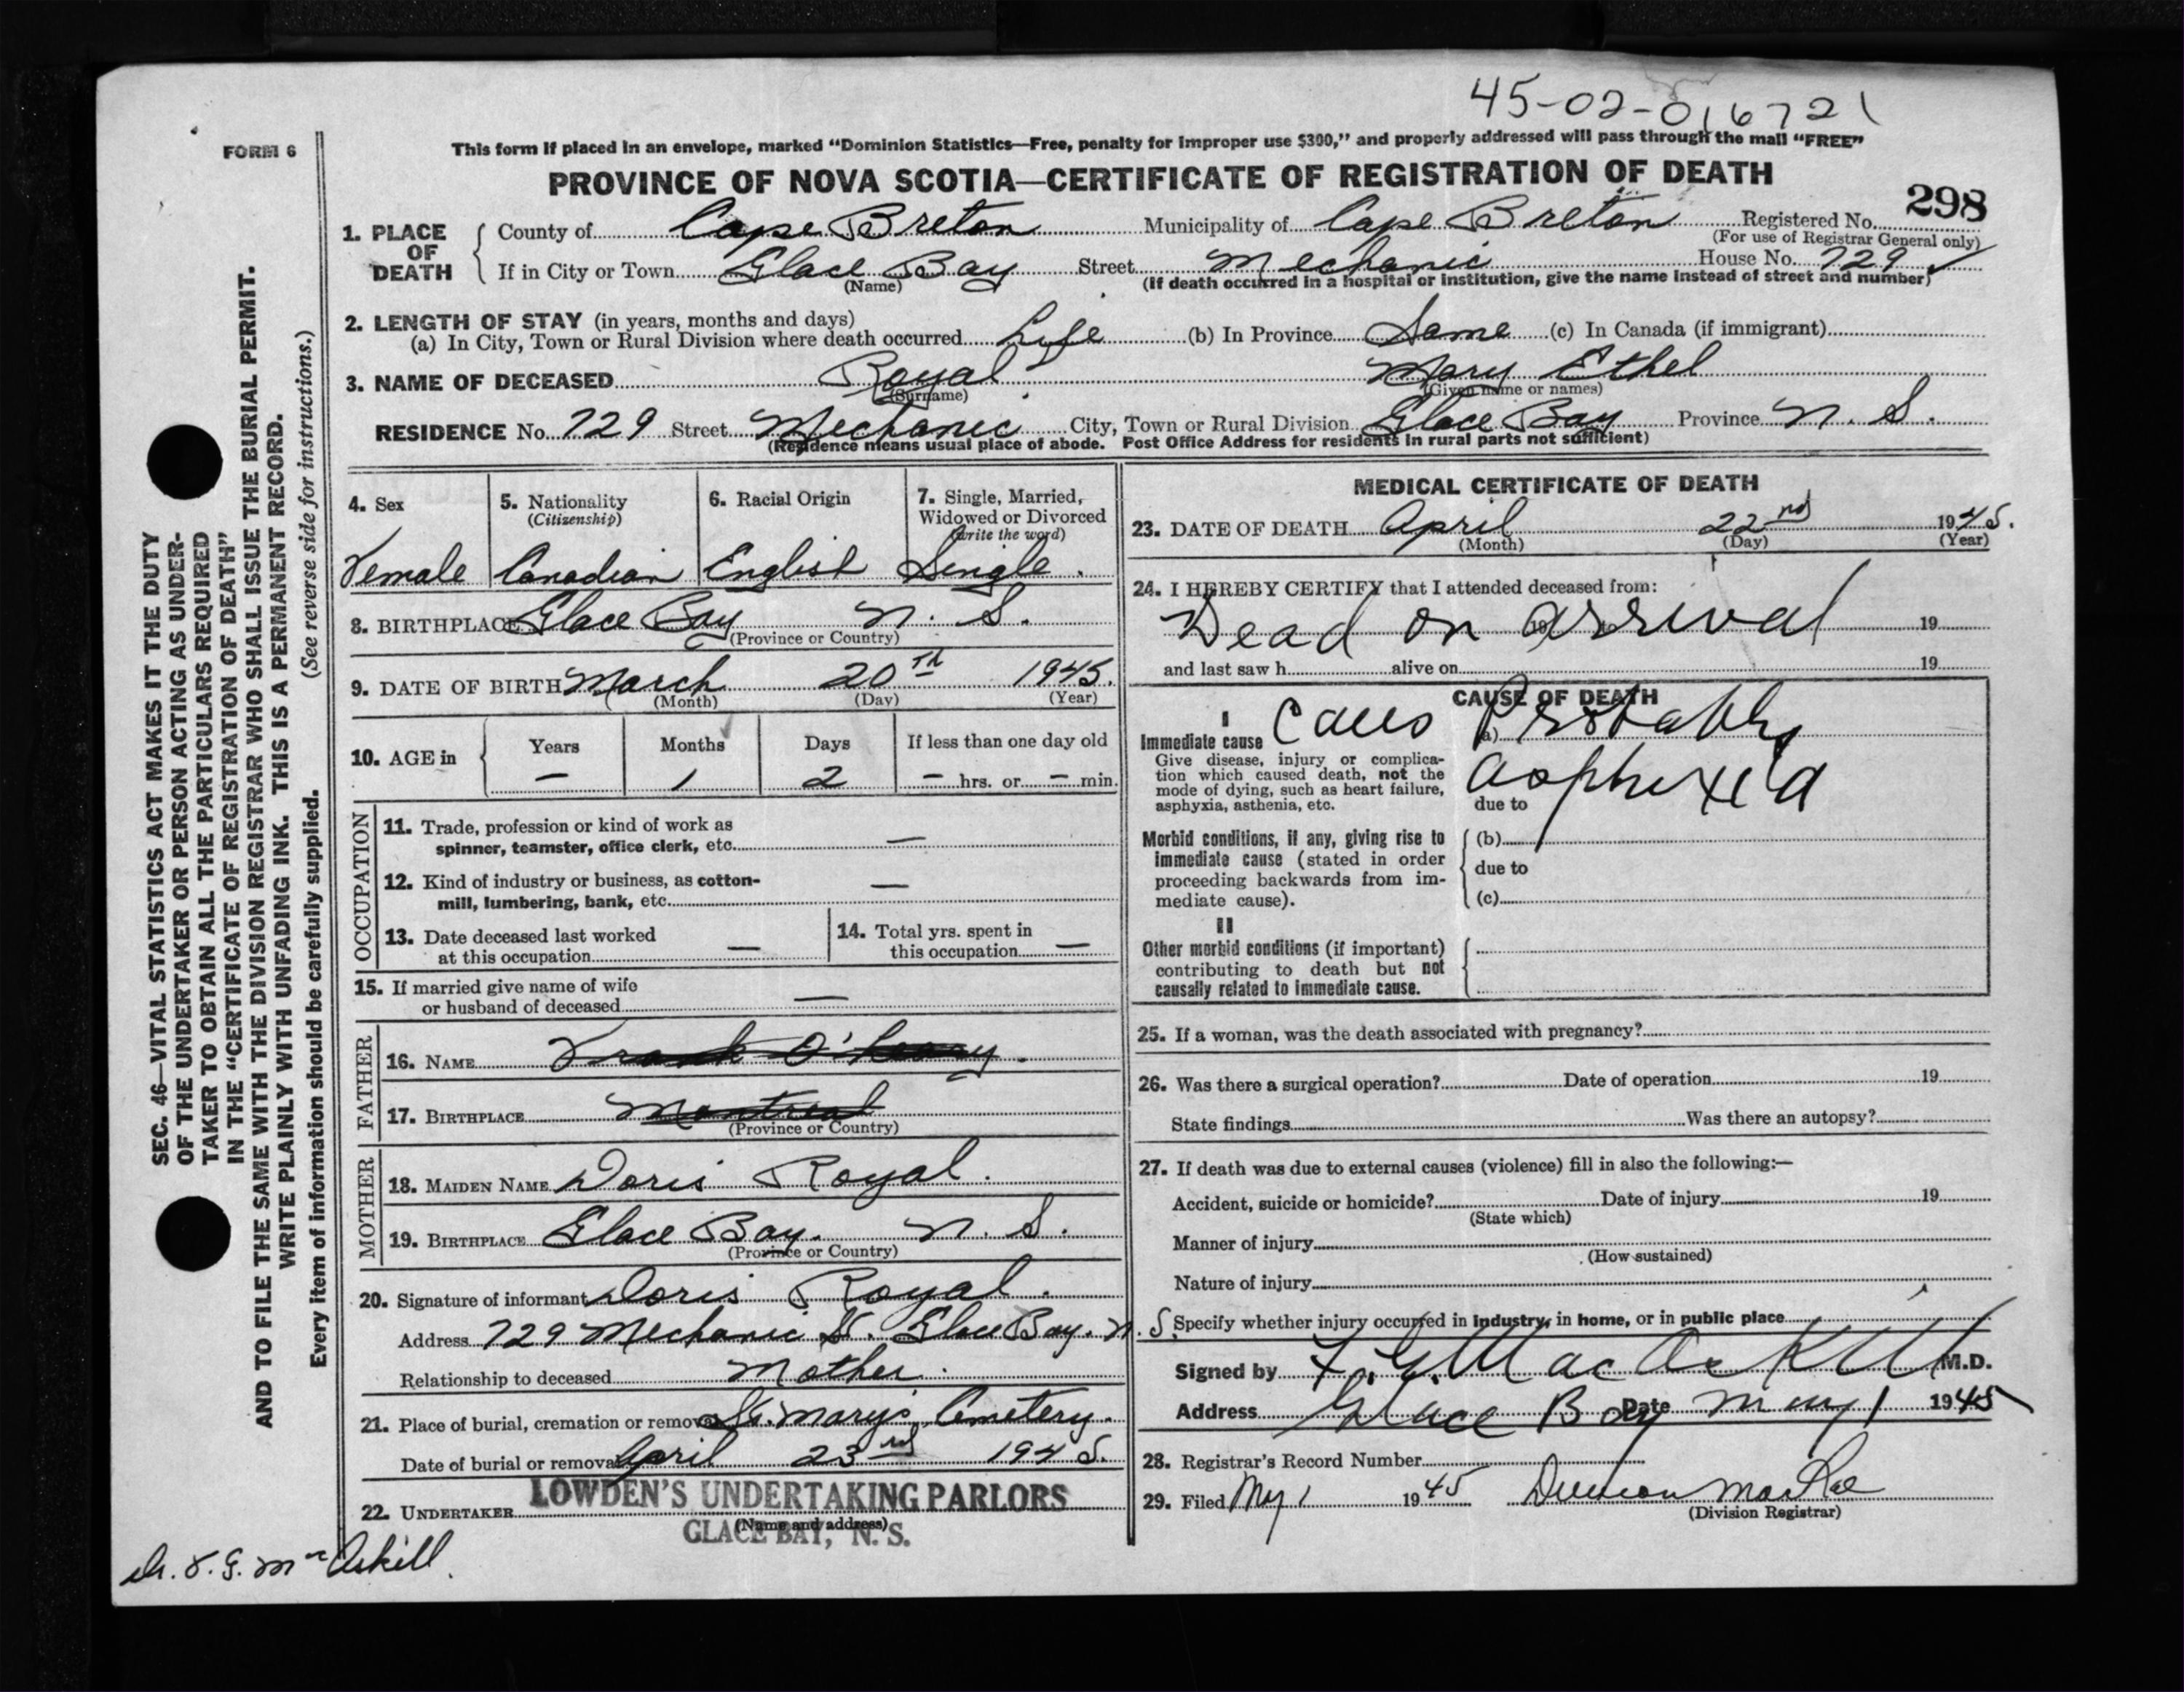 45-02-016721
FORM 6
This form if placed in an envelope, marked "Dominion Statistics—Free, penalty for improper use $300," and properly addressed will pass through the mail "FREE"
PROVINCE OF NOVA SCOTIA—CERTIFICATE OF REGISTRATION OF DEATH
298
1. PLACE OF DEATH
County of Cape Breton Municipality of Cape Breton Registered No.
(For use of Registrar General only)
If in City or Town Glace Bay Street Mechanic House No. 729
(Name) (If death occurred in a hospital or institution, give the name instead of street and number)
2. LENGTH OF STAY (in years, months and days)
(a) In City, Town or Rural Division where death occurred Life (b) In Province Same (c) In Canada (if immigrant)
3. NAME OF DECEASED Royal Mary Ethel
(Surname) (Given name or names)
RESIDENCE No. 729 Street Mechanic City, Town or Rural Division Glace Bay Province N. S.
(Residence means usual place of abode. Post Office Address for residents in rural parts not sufficient)
4. Sex
Female
5. Nationality
(Citizenship)
Canadian
6. Racial Origin
English
7. Single, Married,
Widowed or Divorced
(write the word)
Single.
8. BIRTHPLACE Glace Bay N. S.
(Province or Country)
9. DATE OF BIRTH March 20th 1945.
(Month) (Day) (Year)
10. AGE in
Years Months Days If less than one day old
— 1 2 — hrs. or — min.
OCCUPATION
11. Trade, profession or kind of work as
spinner, teamster, office clerk, etc. —
12. Kind of industry or business, as cotton-
mill, lumbering, bank, etc. —
13. Date deceased last worked
at this occupation —
14. Total yrs. spent in
this occupation —
15. If married give name of wife
or husband of deceased —
FATHER
16. NAME Frank O'Leary.
17. BIRTHPLACE Montreal
(Province or Country)
MOTHER
18. MAIDEN NAME Doris Royal.
19. BIRTHPLACE Glace Bay. N. S.
(Province or Country)
20. Signature of informant Doris Royal.
Address 729 Mechanic St. Glace Bay. N. S.
Relationship to deceased Mother.
21. Place of burial, cremation or removal St. Mary's Cemetery.
Date of burial or removal April 23rd 1945.
22. UNDERTAKER LOWDEN'S UNDERTAKING PARLORS
(Name and address)
GLACE BAY, N. S.
Dr. F. G. McAskill.
MEDICAL CERTIFICATE OF DEATH
23. DATE OF DEATH April 22nd 1945.
(Month) (Day) (Year)
24. I HEREBY CERTIFY that I attended deceased from:
Dead on arrival 19
and last saw h alive on 19
CAUSE OF DEATH
I
Immediate cause
Give disease, injury or complica-
tion which caused death, not the
mode of dying, such as heart failure,
asphyxia, asthenia, etc.
(a) Probably
due to
Morbid conditions, if any, giving rise to
immediate cause (stated in order
proceeding backwards from im-
mediate cause).
(b)
due to
(c)
II
Other morbid conditions (if important)
contributing to death but not
causally related to immediate cause.
25. If a woman, was the death associated with pregnancy?
26. Was there a surgical operation? Date of operation 19
State findings Was there an autopsy?
27. If death was due to external causes (violence) fill in also the following:—
Accident, suicide or homicide? Date of injury 19
(State which)
Manner of injury
(How sustained)
Nature of injury
Specify whether injury occurred in industry, in home, or in public place
Signed by F. G. MacAskill M.D.
Address Glace Bay Date May 1 1945
28. Registrar's Record Number
29. Filed My 1 1945 Duncan MacRae
(Division Registrar)
SEC. 46—VITAL STATISTICS ACT MAKES IT THE DUTY
OF THE UNDERTAKER OR PERSON ACTING AS UNDER-
TAKER TO OBTAIN ALL THE PARTICULARS REQUIRED
IN THE "CERTIFICATE OF REGISTRATION OF DEATH"
AND TO FILE THE SAME WITH THE DIVISION REGISTRAR WHO SHALL ISSUE THE BURIAL PERMIT.
WRITE PLAINLY WITH UNFADING INK. THIS IS A PERMANENT RECORD.
Every item of information should be carefully supplied. (See reverse side for instructions.)